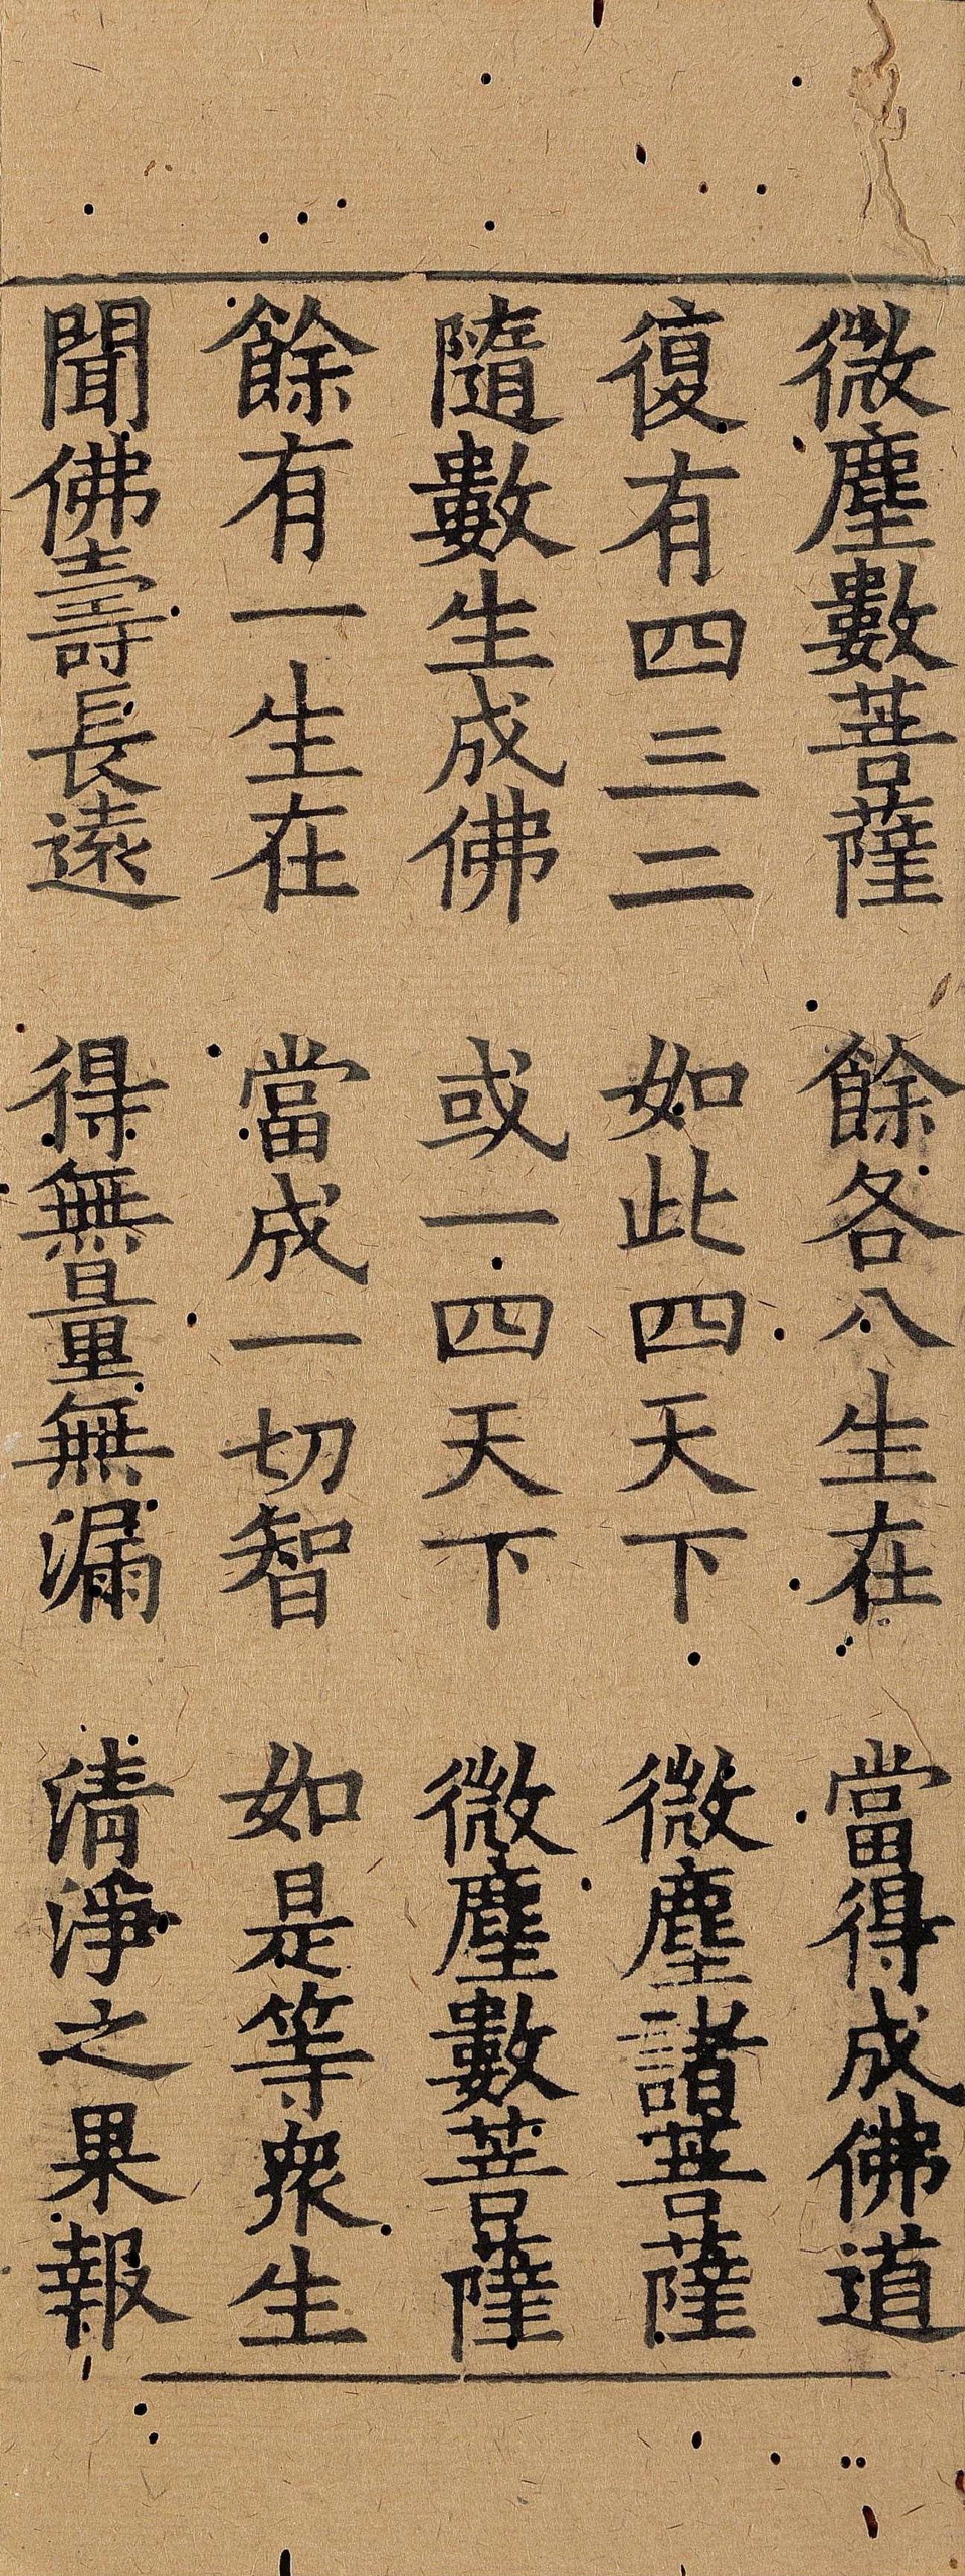 微塵數菩薩　餘各八生在　當得成佛道
復有四三二　如此四天下　微塵諸菩薩
隨數生成佛　或一四天下　微塵數菩薩
餘有一生在　當成一切智　如是等衆生
聞佛壽長遠　得無量無漏　清淨之果報